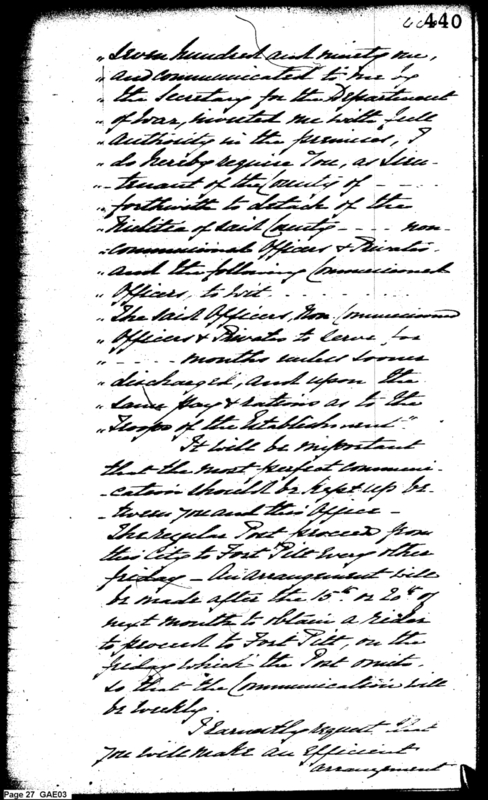 440
„ seven hundred and ninety one,
„ and communicated to me by
„ the Secretary for the Department
„ of War, invested me with full
„ authority in the premises, I
„ do hereby require You, as Lieu-
„ -tenant of the County of - - - -
„ forthwith to detach of the
„ Militia of said County - - - - non-
„ commissioned Officers & Privates
„ and the following Commissioned
„ Officers, to wit - - - - - -
„ The said Officers, Non Commissioned
„ Officers & Privates to serve for
„ - - - - - months unless sooner
„ discharged, and upon the
„ same pay & rations as to the
„ Troops of the Establishment."
It will be important
that the most perfect communi-
-cation should be kept up be-
-tween you and this Office -
The regular Post proceeds from
this City to Fort Pitt every other
friday - An arrangement will
be made after the 15th or 20th of
next month to obtain a rider
to proceed to Fort Pitt, on the
friday which the Post omits,
so that the Communication will
be weekly.
I earnestly request that
you will make an efficient
arrangement
Page 27 GAE03